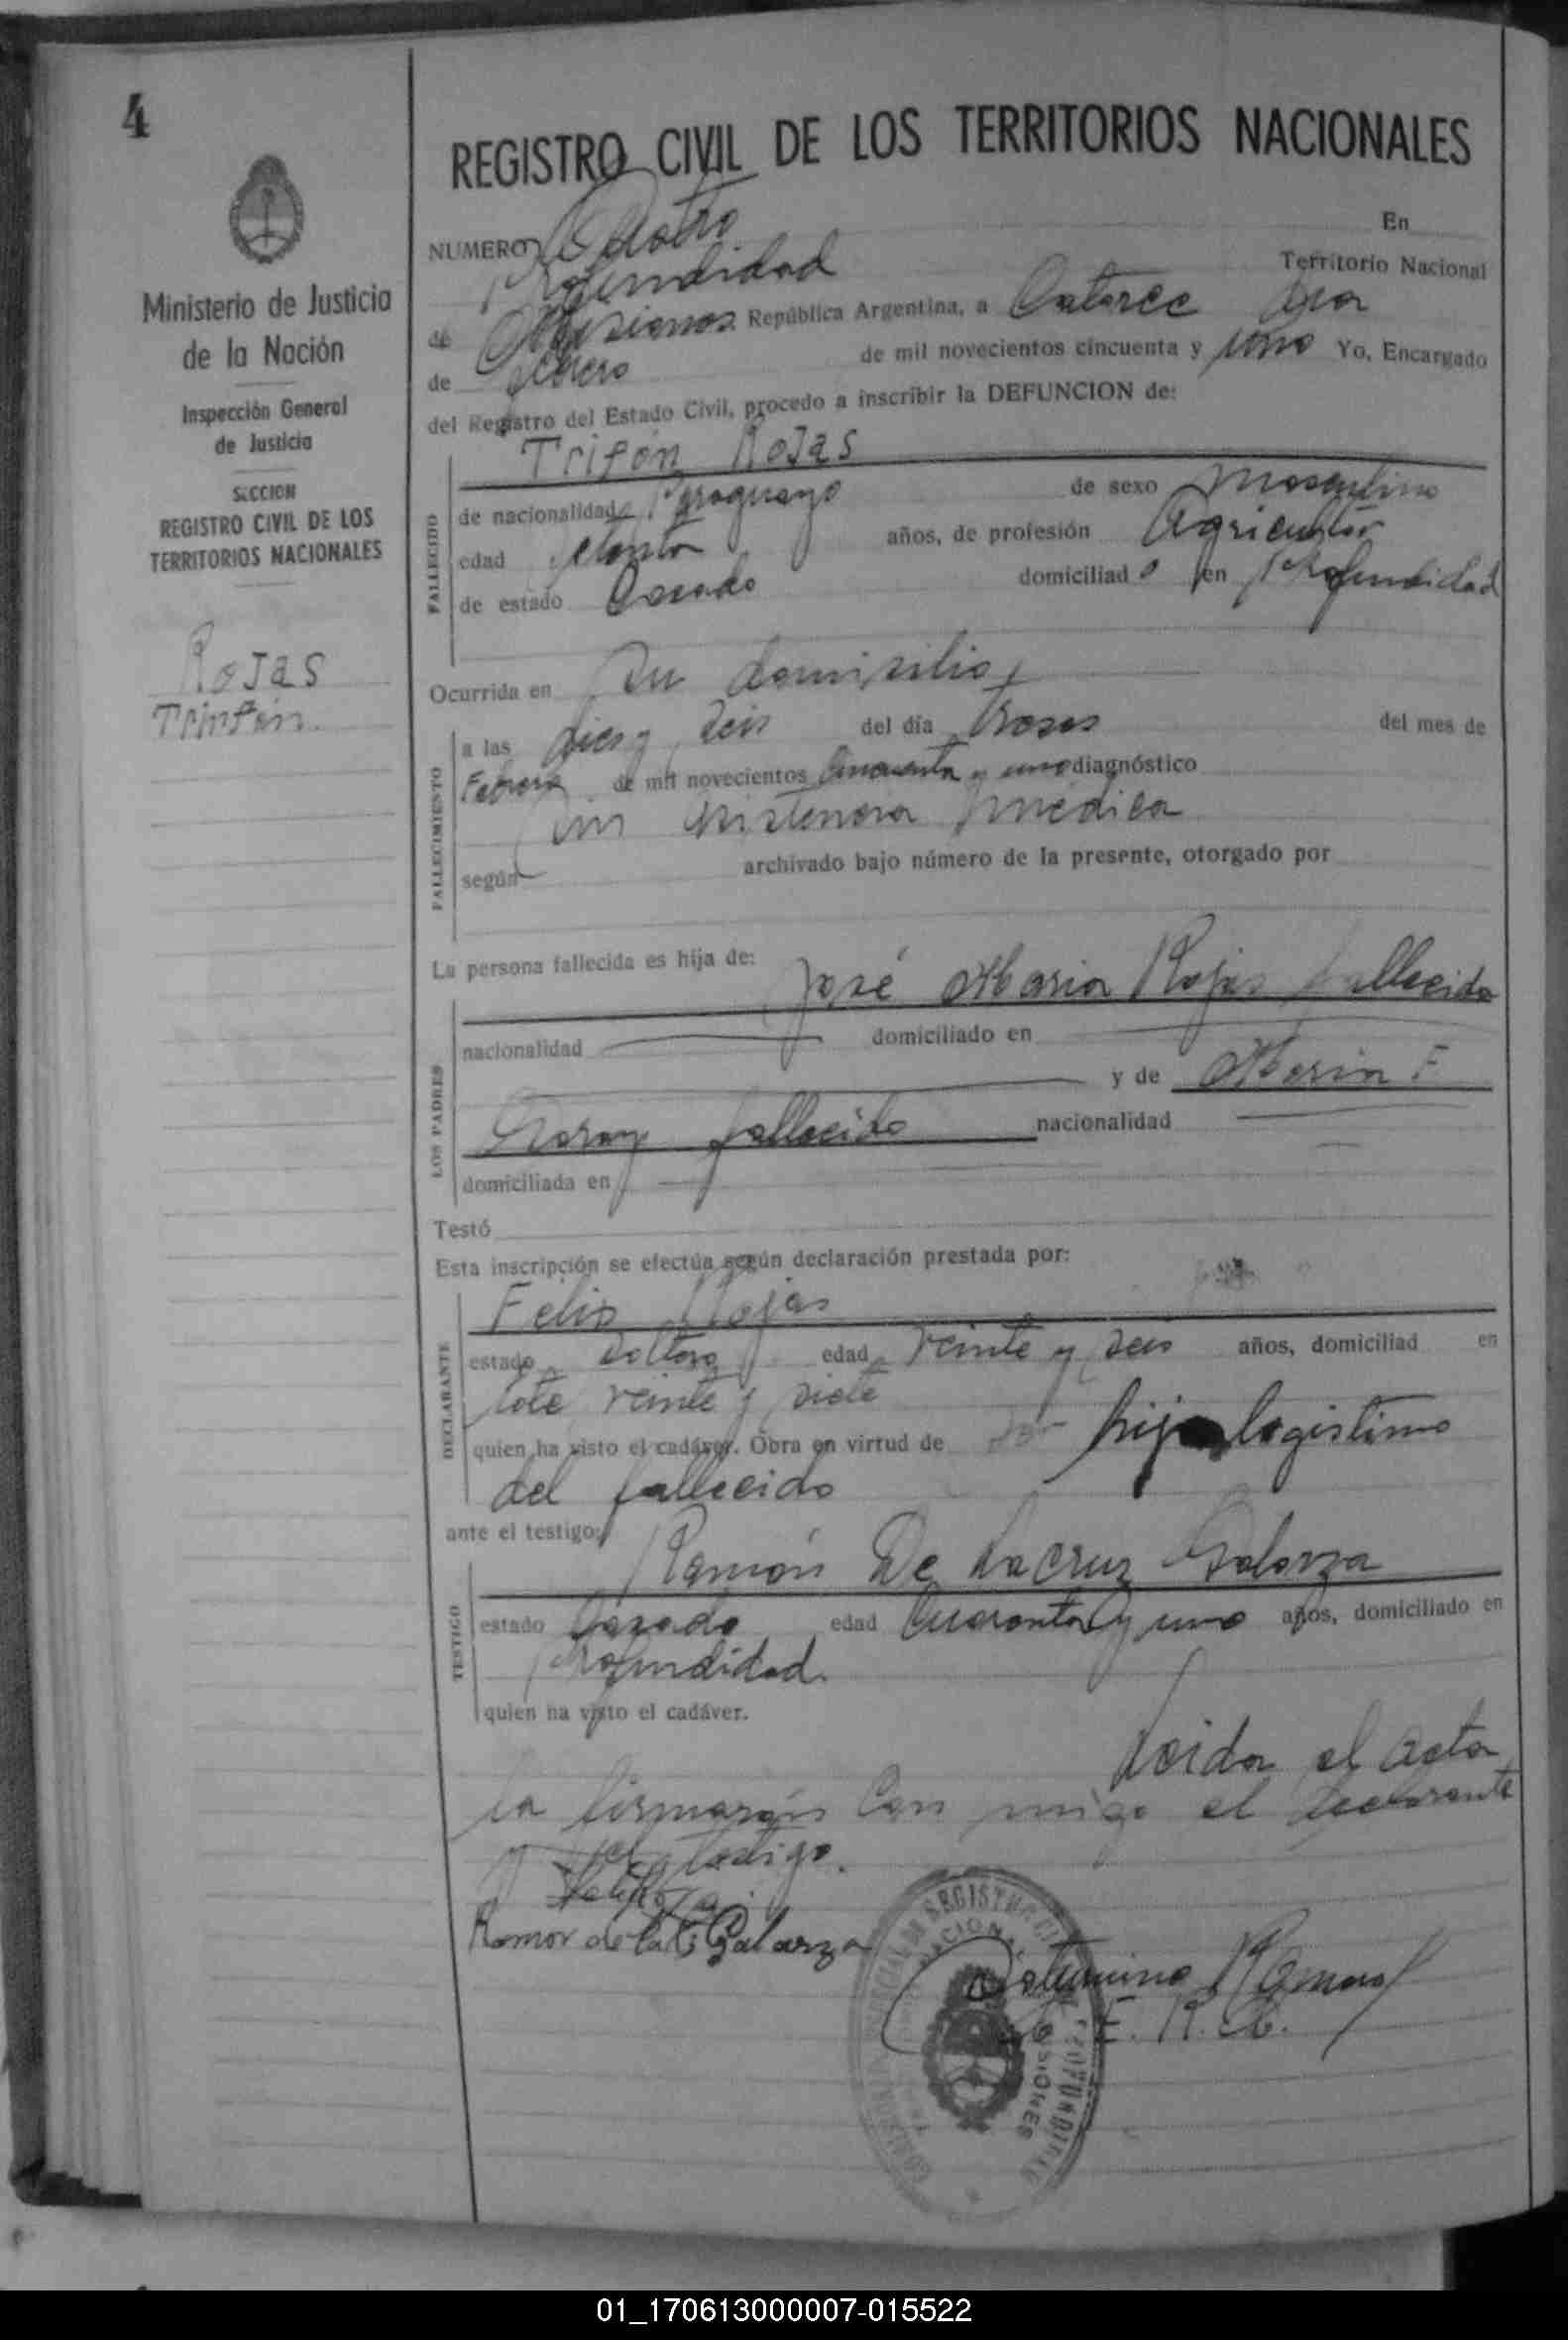 4
Ministerio de Justicia
de la Nación
Inspección General
de Justicia
SECCION
REGISTRO CIVIL DE LOS
TERRITORIOS NACIONALES
Rojas
REGISTRO CIVIL DE LOS TERRITORIOS NACIONALES
NUMERO Cuatro En
Profundidad Territorio Nacional
de Misiones República Argentina, a Catorce dia
de febrero de mil novecientos cincuenta y uno Yo, Encargado
del Registro del Estado Civil, procedo a inscribir la DEFUNCION de:
Trifón Rojas
FALLECIDO
de nacionalidad Paraguayo de sexo Masculino
edad años, de profesión Agricultor
de estado Casado domiciliado en Profundidad
Ocurrida en Su domisilio
FALLECIMIENTO
a las dies y seis del día treses del mes de
Febrero de mil novecientos Cincuenta y uno diagnóstico
sin asistencia médica
según archivado bajo número de la presente, otorgado por
La persona fallecida es hija de:
José Maria Rojas fallecido
LOS PADRES
nacionalidad domiciliado en
y de Maria F.
fallecida nacionalidad
domiciliada en
Testó
Esta inscripción se efectúa según declaración prestada por:
Felis Rojas
DECLARANTE
estado soltero edad veinte y seis años, domiciliad en
lote veinte y siete
quien ha visto el cadáver. Obra en virtud de hijo legistimo
del fallecido
ante el testigo:
Ramón De La Cruz Galarza
TESTIGO
estado Casado edad Cuarenta y uno años, domiciliado en
Profundidad.
quien ha visto el cadáver.
Leida el acta
la firmarón Con migo el declarante
y el testigo.
Ramon de la C. Galarza
Saturnino Ramos
E. R. C.
PROFUNDIDAD
MISIONES
01_170613000007-015522